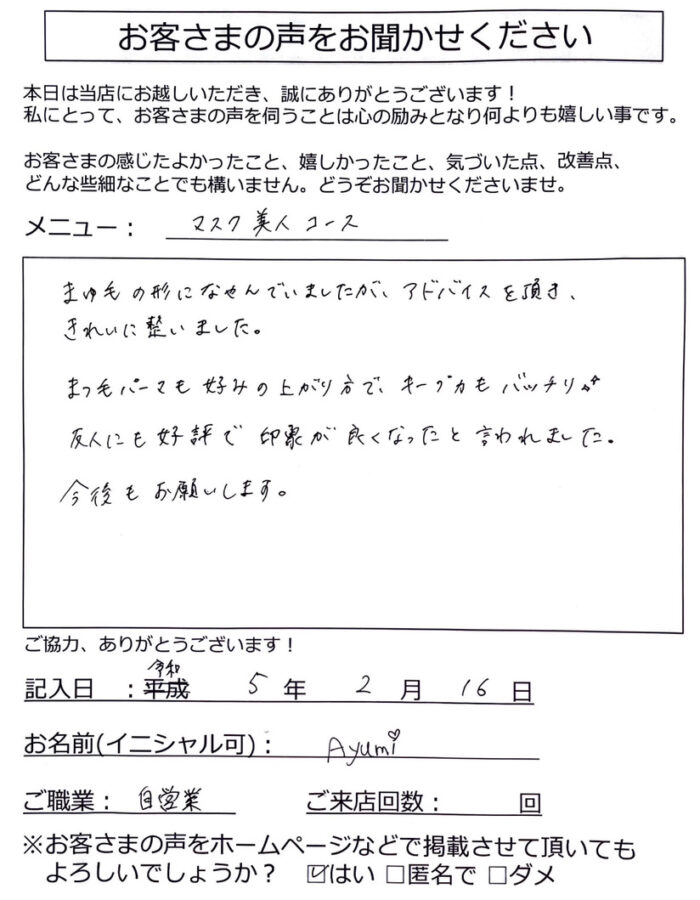 お客さまの声をお聞かせください
本日は当店にお越しいただき、誠にありがとうございます!
私にとって、お客さまの声を伺うことは心の励みとなり何よりも嬉しい事です。
お客さまの感じたよかったこと、嬉しかったこと、気づいた点、改善点、
どんな些細なことでも構いません。どうぞお聞かせくださいませ。
メニュー： マスク美人コース
まゆ毛の形になやんでいましたが、アドバイスを頂き、
きれいに整いました。
まつ毛パーマも好みの上がり方で、キープ力もバッチリ
友人にも好評で印象が良くなったと言われました。
今後もお願いします。
ご協力、ありがとうございます!
令和
記入日 ：平成 5 年 2 月 16 日
お名前(イニシャル可)： Ayumi
ご職業： 自営業 ご来店回数： 回
※お客さまの声をホームページなどで掲載させて頂いても
よろしいでしょうか？ ☑はい □匿名で □ダメ